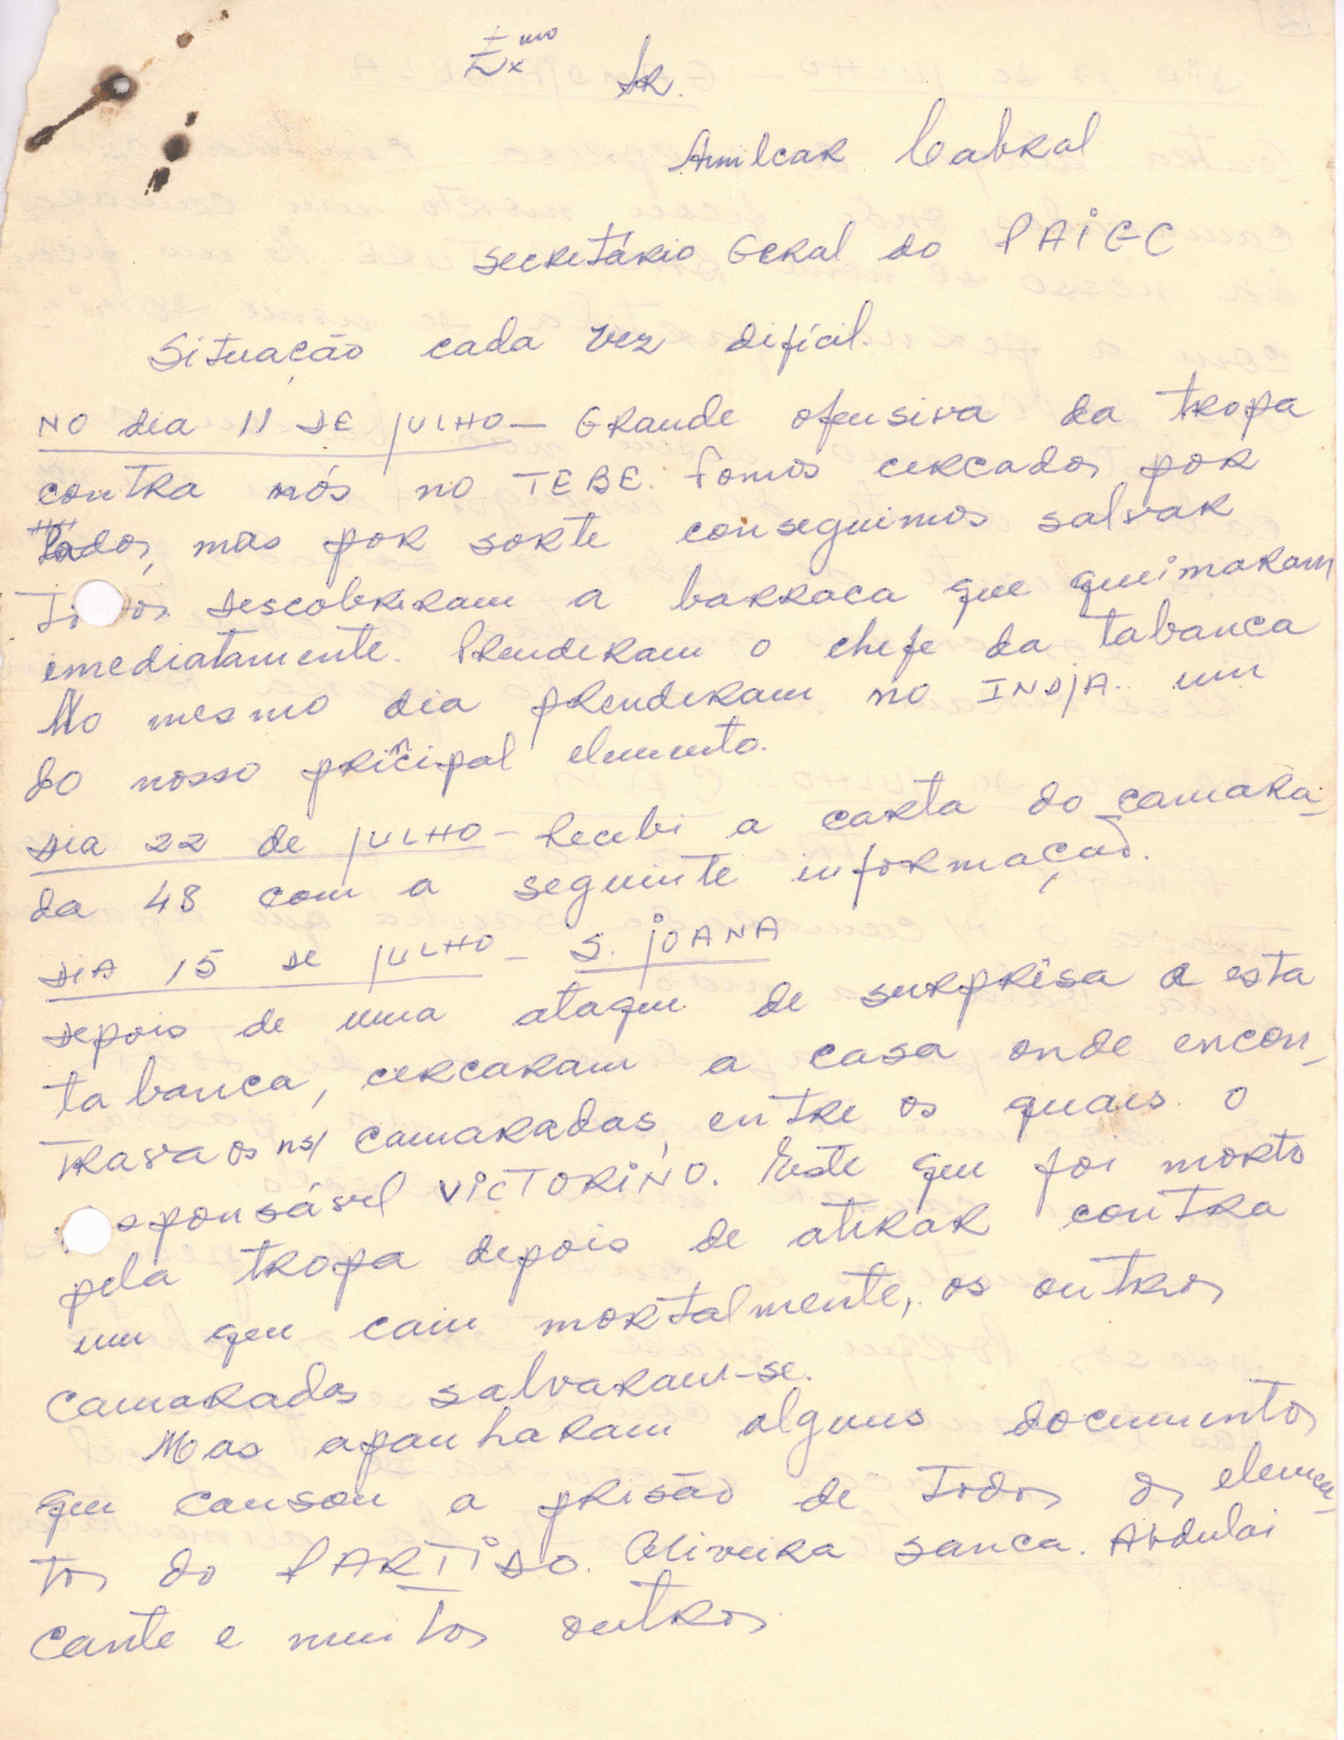 Exmo
Sr.
Amilcar Cabral
Secretário Geral do PAIGC
Situação cada vez difícil.
NO dia 11 DE JULHO – Grande ofensiva da tropa
contra nós no TEBE. Fomos cercados por
lados, mas por sorte conseguimos salvar
Todos. Descobriram a barraca que queimaram
imediatamente. Prenderam o chefe da tabanca
No mesmo dia prenderam no INDJA. um
do nosso principal elemento.
Dia 22 de JULHO – Recebi a carta do camara-
da 48 com a seguinte informação.
DIA 15 de JULHO – S. JOANA
Depois de uma ataque de surprêsa a esta
tabanca, cercaram a casa onde encon-
trava os ns/ camaradas, entre os quais o
sponsável VICTORINO. Este que foi morto
pela tropa depois de atirar contra
um que caiu mortalmente, os outros
camaradas salvaram-se.
Mas apanharam alguns documentos
que causou a prisão de Todos os elemen-
tos do PARTIDO. Oliveira Sanca. Abdulai
cante e muitos outros